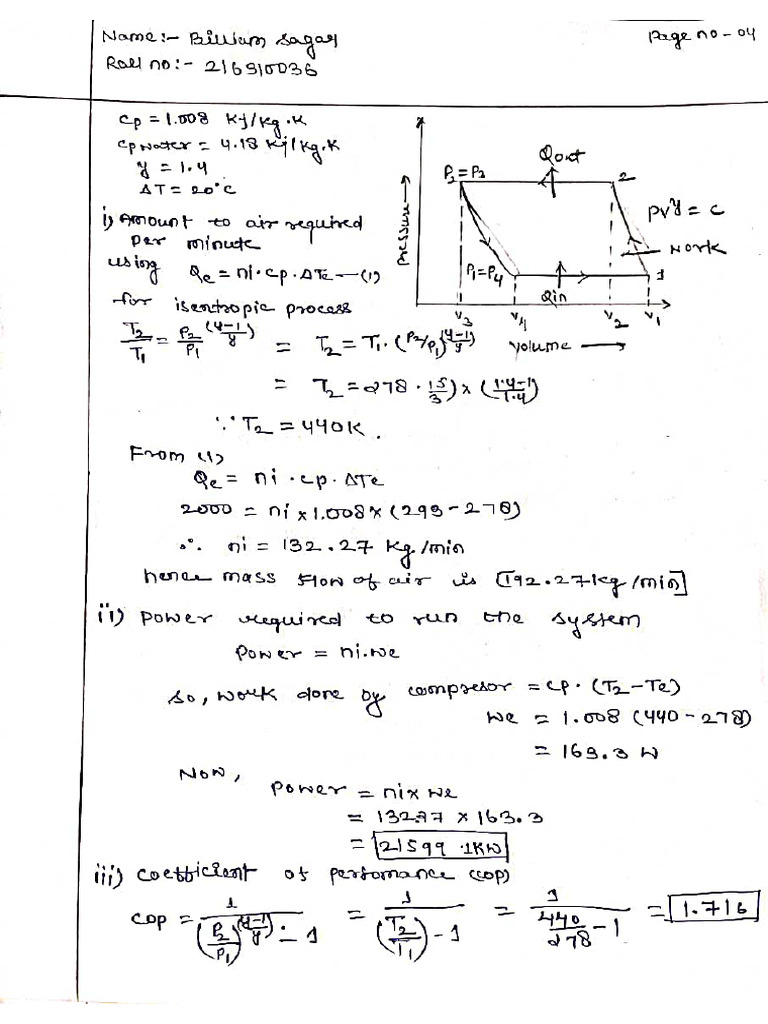 Name:- Billium Sagar
Page no-04
Roll no:- 216910036
cp = 1.008 kj/kg.k
cpwater = 4.18 kj/kg.k
y = 1.4
ΔT = 20°C
i) Amount to air required
per minute
using Qe = ni·cp·ΔTe —(1)
for isentropic process
T2/T1 = P2/P1^(y-1/y) = T2 = T1·(P2/P1)^(y-1/y)
= T2 = 278 · 15/3) × (1.4-1/1.4)
∵ T2 = 440K.
Pressure →
P2 = P3
Qout
2
PVy = C
Work
P1 = P4
1
Qin
V3 V4 V2 V1
Volume →
From (1)
Qe = ni · cp · ΔTe
2000 = ni × 1.008 × (293 - 278)
∴ ni = 132.27 kg/min
hence mass flow of air is [192.27kg/min]
ii) power required to run the system
Power = ni.we
so, work done by compresor = cp · (T2 - Te)
we = 1.008 (440 - 278)
= 163.3 W
Now,
Power = ni x we
= 132.77 × 163.3
= 21599.1KW
iii) coefficient of perfomance (cop)
cop = 1/(P2/P1)^(y-1/y) - 1 = 1/(T2/T1) - 1 = 1/440/278 - 1 = 1.716